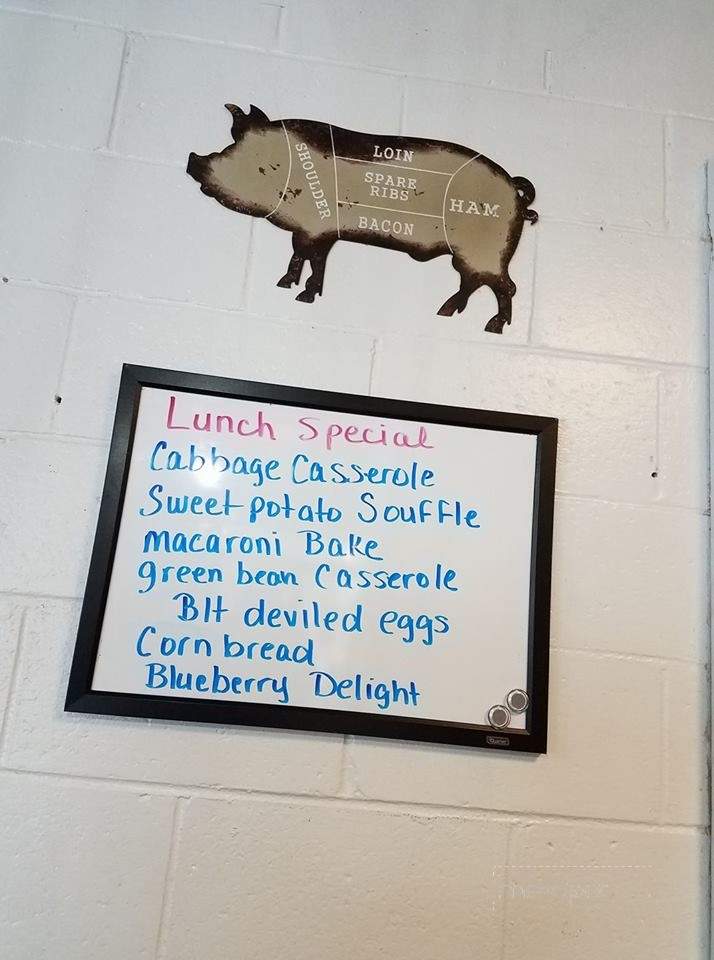 LOIN
SHOULDER
SPARE
RIBS
HAM
BACON
Lunch Special
Cabbage Casserole
Sweet potato Souffle
Macaroni Bake
green bean Casserole
Blt deviled eggs
Corn bread
Blueberry Delight